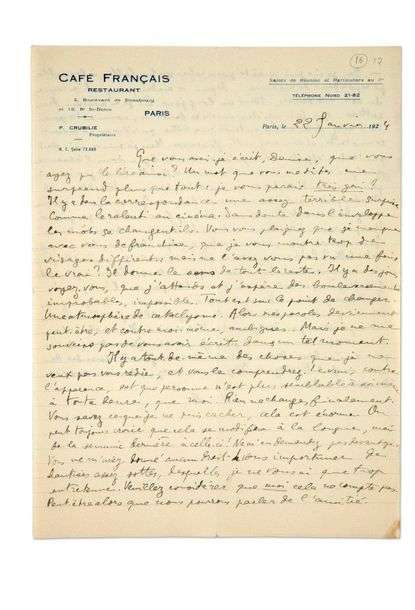 16 17
CAFÉ FRANÇAIS
RESTAURANT
2, Boulevard de Strasbourg
et 10, Bd St-Denis
PARIS
P. CRUBILIÉ
Propriétaire
R. C. Seine 73.889
Salons de Réunion et Particuliers au 1er
TÉLÉPHONE NORD 21-82
Paris, le 22 Janvier 1924
Que vous ai-je écrit, Denise, que vous
ayez pu le lire ainsi? Un mot que vous me dites, me
surprend plus que tout: je vous parais très gai?
Il y a dans la correspondance une assez terrible surprise
Comme le ralenti au cinéma. Sans doute dans l'enveloppe
les mots se changent-ils. Vous vous plaignez que je manque
avec vous de franchise, que je vous montre trop de
visages différents mais ne l'avez-vous pas vu une fois
le vrai? Il donne le sens de tout le reste. Il y a des jours,
voyez-vous, que j'attends et j'espère des bouleversements
improbables, impossibles. Tout est sur le point de changer.
Une atmosphère de cataclysme. Alors mes paroles deviennent
peut-être, et contre moi-même, ambiguës. Mais je ne me
souviens pas de vous avoir écrit dans un tel moment.
Il y a tout de même des choses que je ne
veux pas vous redire, et vous la comprendrez: le vrai, contre
l'apparence, est que personne n'est plus semblable à soi-même
à toute heure, que moi. Rien ne change, finalement.
Vous savez ce que je ne puis cacher, cela est énorme On
peut toujours croire que cela se modifiera à la longue, mais
de la semaine dernière à celle-ci! Ne m'en demandez pas davantage.
Vous ne m'avez donné aucun droit à vous importuner de
hantises assez sottes, desquelles je ne vous ai que trop
entretenue. Veuillez considérer que moi cela ne compte pas.
Peut-être alors que nous pourrons parler de l'amitié.